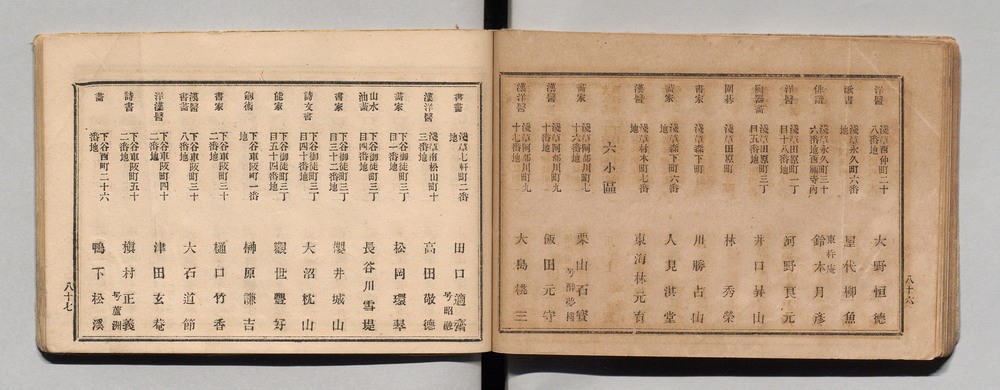 洋醫 淺草西仲町二十八番地 大野恒德
漢書 淺草永久町六番地 屋代柳魚
俳諧 淺草永久町三十六番地西福寺內 東杵庵 鈴木月彥
畫家 淺草田原町一丁目十八番地 河野良元
陶器畫 淺草田原町三丁目五番地 井口昇山
圍碁 淺草田原町 林秀榮
書家 淺草森下町 川勝占山
畫家 淺草森下町六番地 人見淇堂
漢醫 淺草材木町七番地 東海林元有
六小區
書家 淺草阿部川町七十六番地 栗山石寶 号醉夢樓
漢醫 淺草阿部川町九十番地 飯田元守
漢洋醫 淺草阿部川町九十七番地 大島桃三
八十六
書畫 淺草七軒町二番地 田口適齋 号昭融
漢洋醫 淺草南松山町十三番地 高田敬德
畫家 下谷御徒町三丁目一番地 松岡環翠
山水油畫 下谷御徒町三丁目四番地 長谷川雪堤
書家 下谷御徒町三丁目三十二番地 櫻井城山
詩文書 下谷御徒町三丁目四十番地 大沼枕山
能家 下谷御徒町三丁目五十四番地 觀世豐好
劍術 下谷車阪町一番地 榊原謙吉
書家 下谷車阪町三十五番地 樋口竹香
漢醫書畫 下谷車阪町三十八番地 大石道節
洋漢醫 下谷車阪町四十二番地 津田玄菴
詩書 下谷車阪町五十二番地 籏村正義 号蘆洲
畫 下谷西町二十六番地 鴨下松溪
八十七